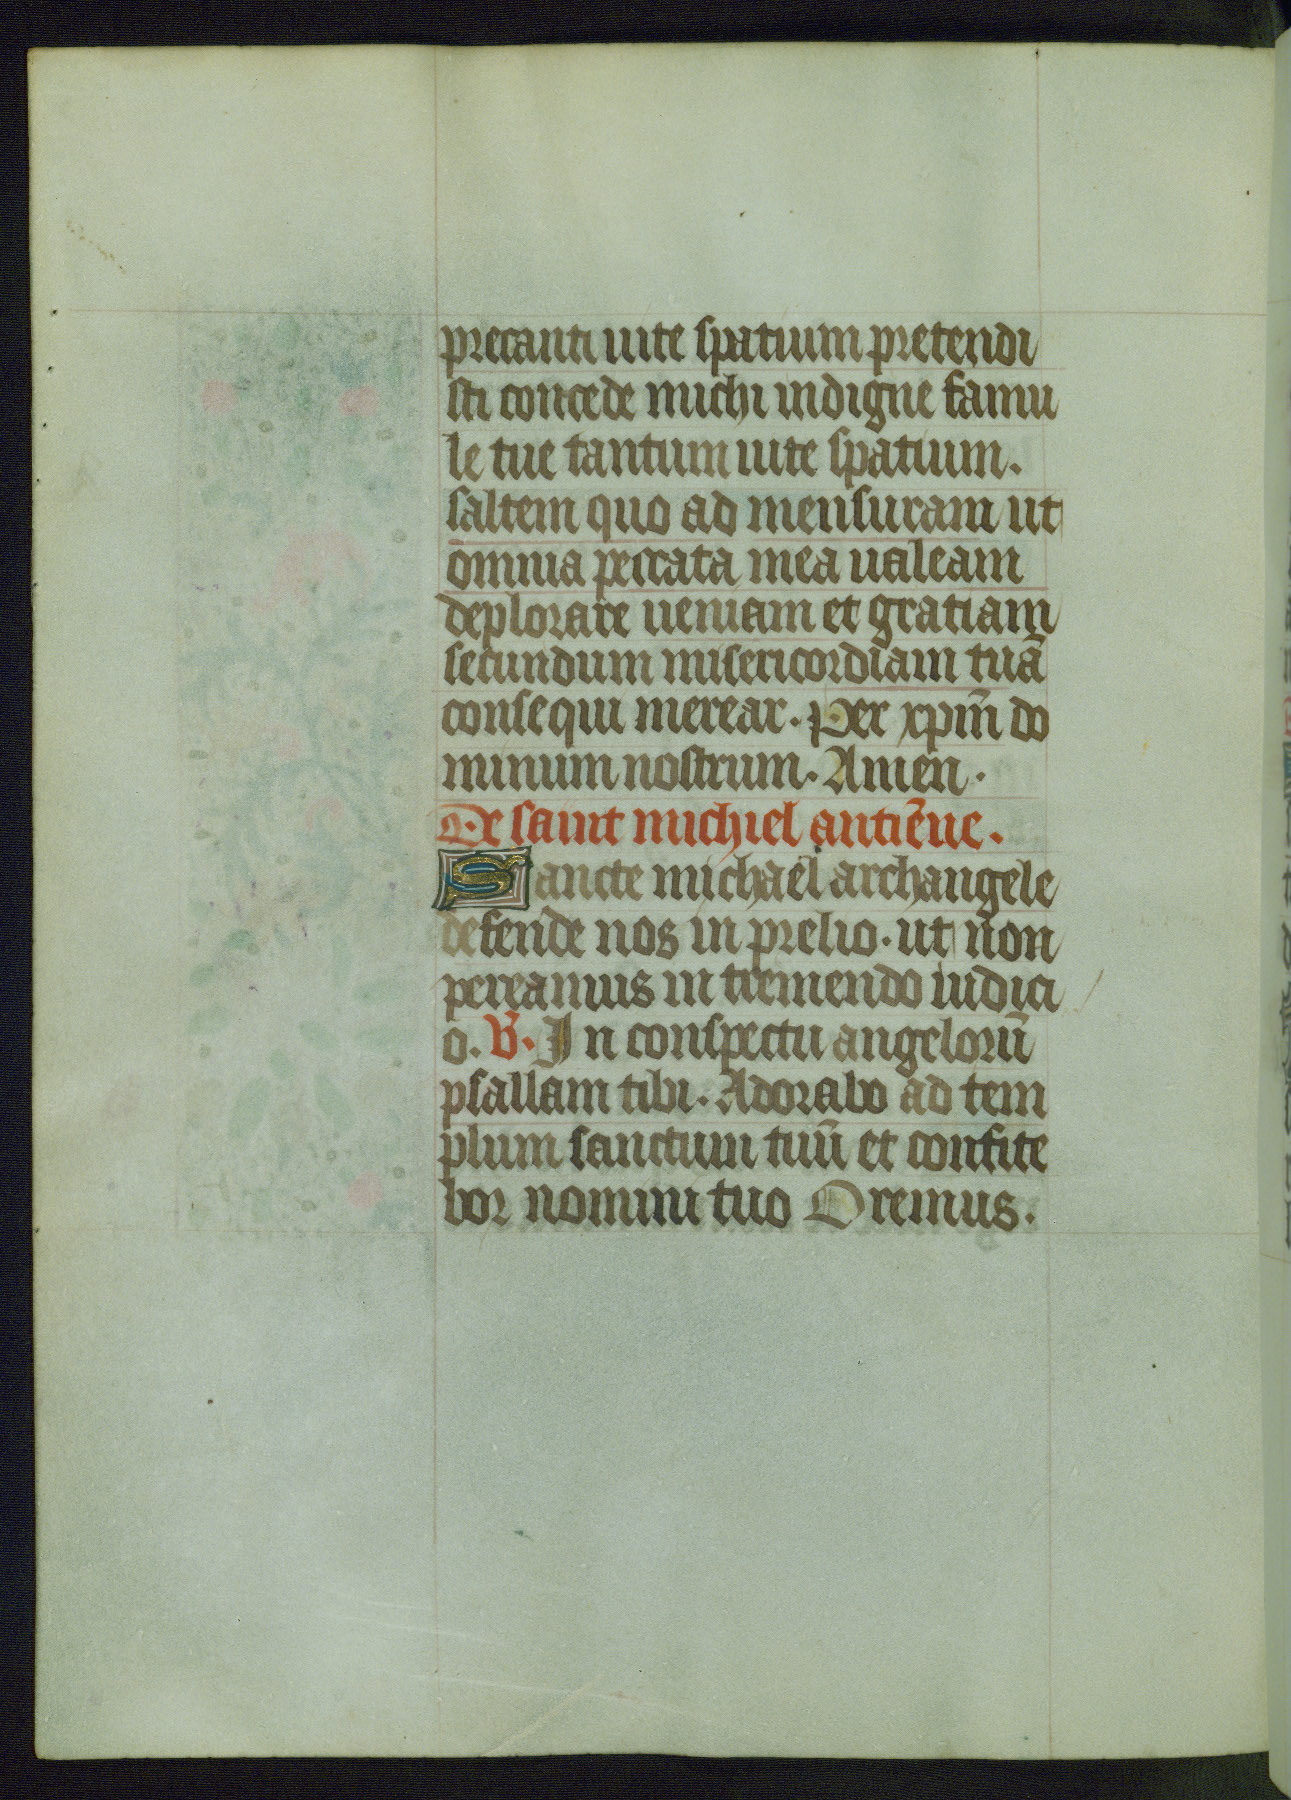 precanti uite spatium pretendi
sti concede michi indigne famu
le tue tantum uite spatium.
saltem quo ad mensuram ut
omnia peccata mea ualeam
deplorare ueniam et gratiam
secundum misericordiam tuā
consequi merear. Per xpm̄ do
minum nostrum. Amen.
De saint michiel antiēne.
Sancte michael archangele
defende nos in prelio. ut non
pereamus in tremendo iudici
o. V̄. In conspectu angelorū
psallam tibi. Adorabo ad tem
plum sanctum tuū et confite
bor nomini tuo Oremus.